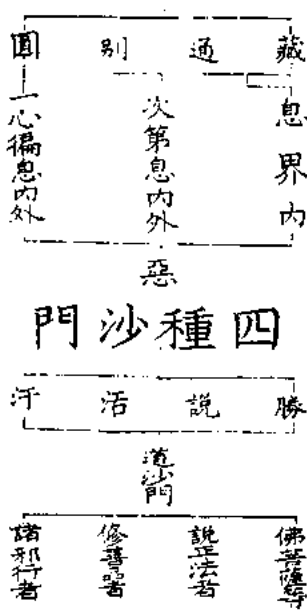 藏通别圓
息界內
次第息內外
一心徧息內外
惡
四種沙門
勝說活汙
道沙門
佛菩薩等
說正法者
修善品者
諸邪行者